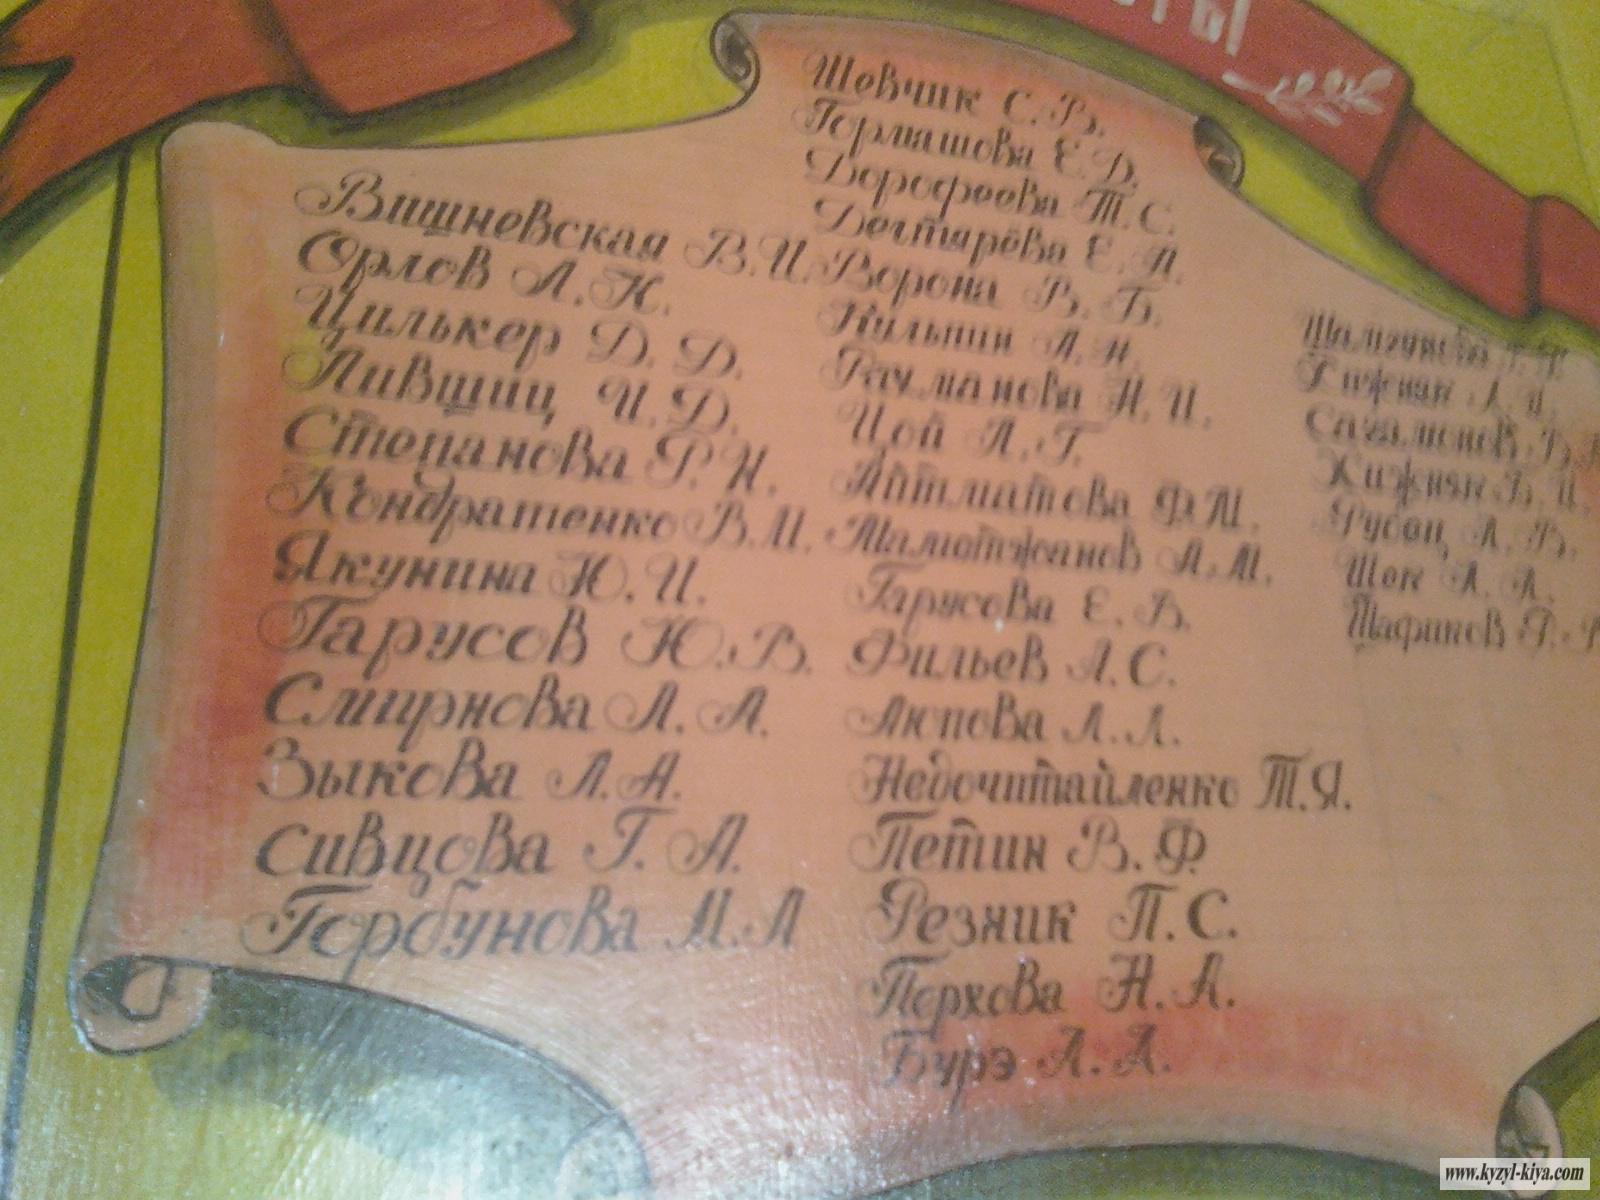 Вишневская В.И.
Орлов А.К.
Цилькер Д.Д.
Лившиц И.Д.
Степанова Р.Н.
Кондратенко В.М.
Якунина Ю.И.
Гарусов Ю.В.
Смирнова Л.А.
Зыкова Л.А.
Сивцова Г.А.
Горбунова М.Л
Шевчик С.В.
Гормашова Е.Д.
Дорофеева Т.С.
Дегтярёва Е.П.
Ворона В.Б.
Кильпин А.Н.
Рахманова Н.И.
Цой Л.Г.
Айтматова Ф.М.
Маматжанов А.М.
Гарусова Е.В.
Фильев А.С.
Аюпова Л.Л.
Недочитайленко Т.Я.
Петин В.Ф.
Резник П.С.
Перхова Н.А.
Бурэ А.А.
Хижняк А.И.
Сагамонов В.
Хижняк В.И.
Рубец А.В.
Шек А.А.
Шафиков Ф.
www.kyzyl-kiya.com